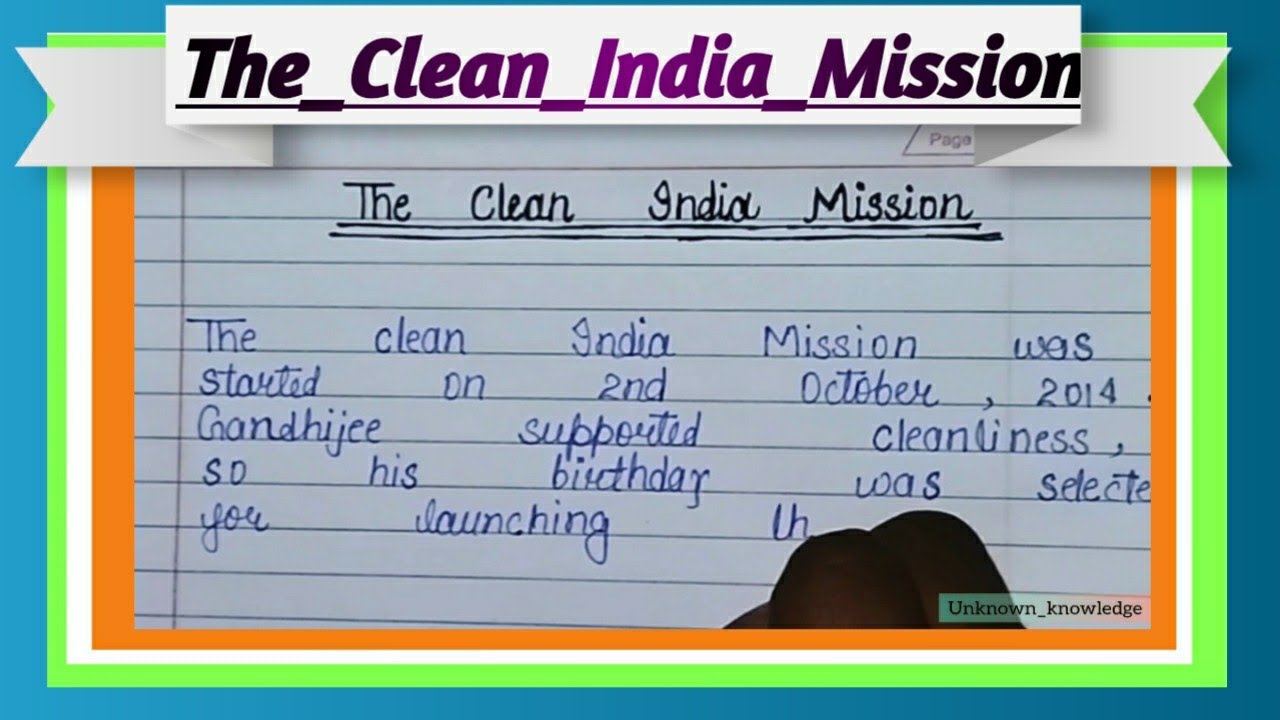 The_Clean_India_Mission
Page
The Clean India Mission
The clean India Mission was
started on 2nd October, 2014.
Gandhijee supported cleanliness,
so his birthday was selecte
for launching th
Unknown_knowledge